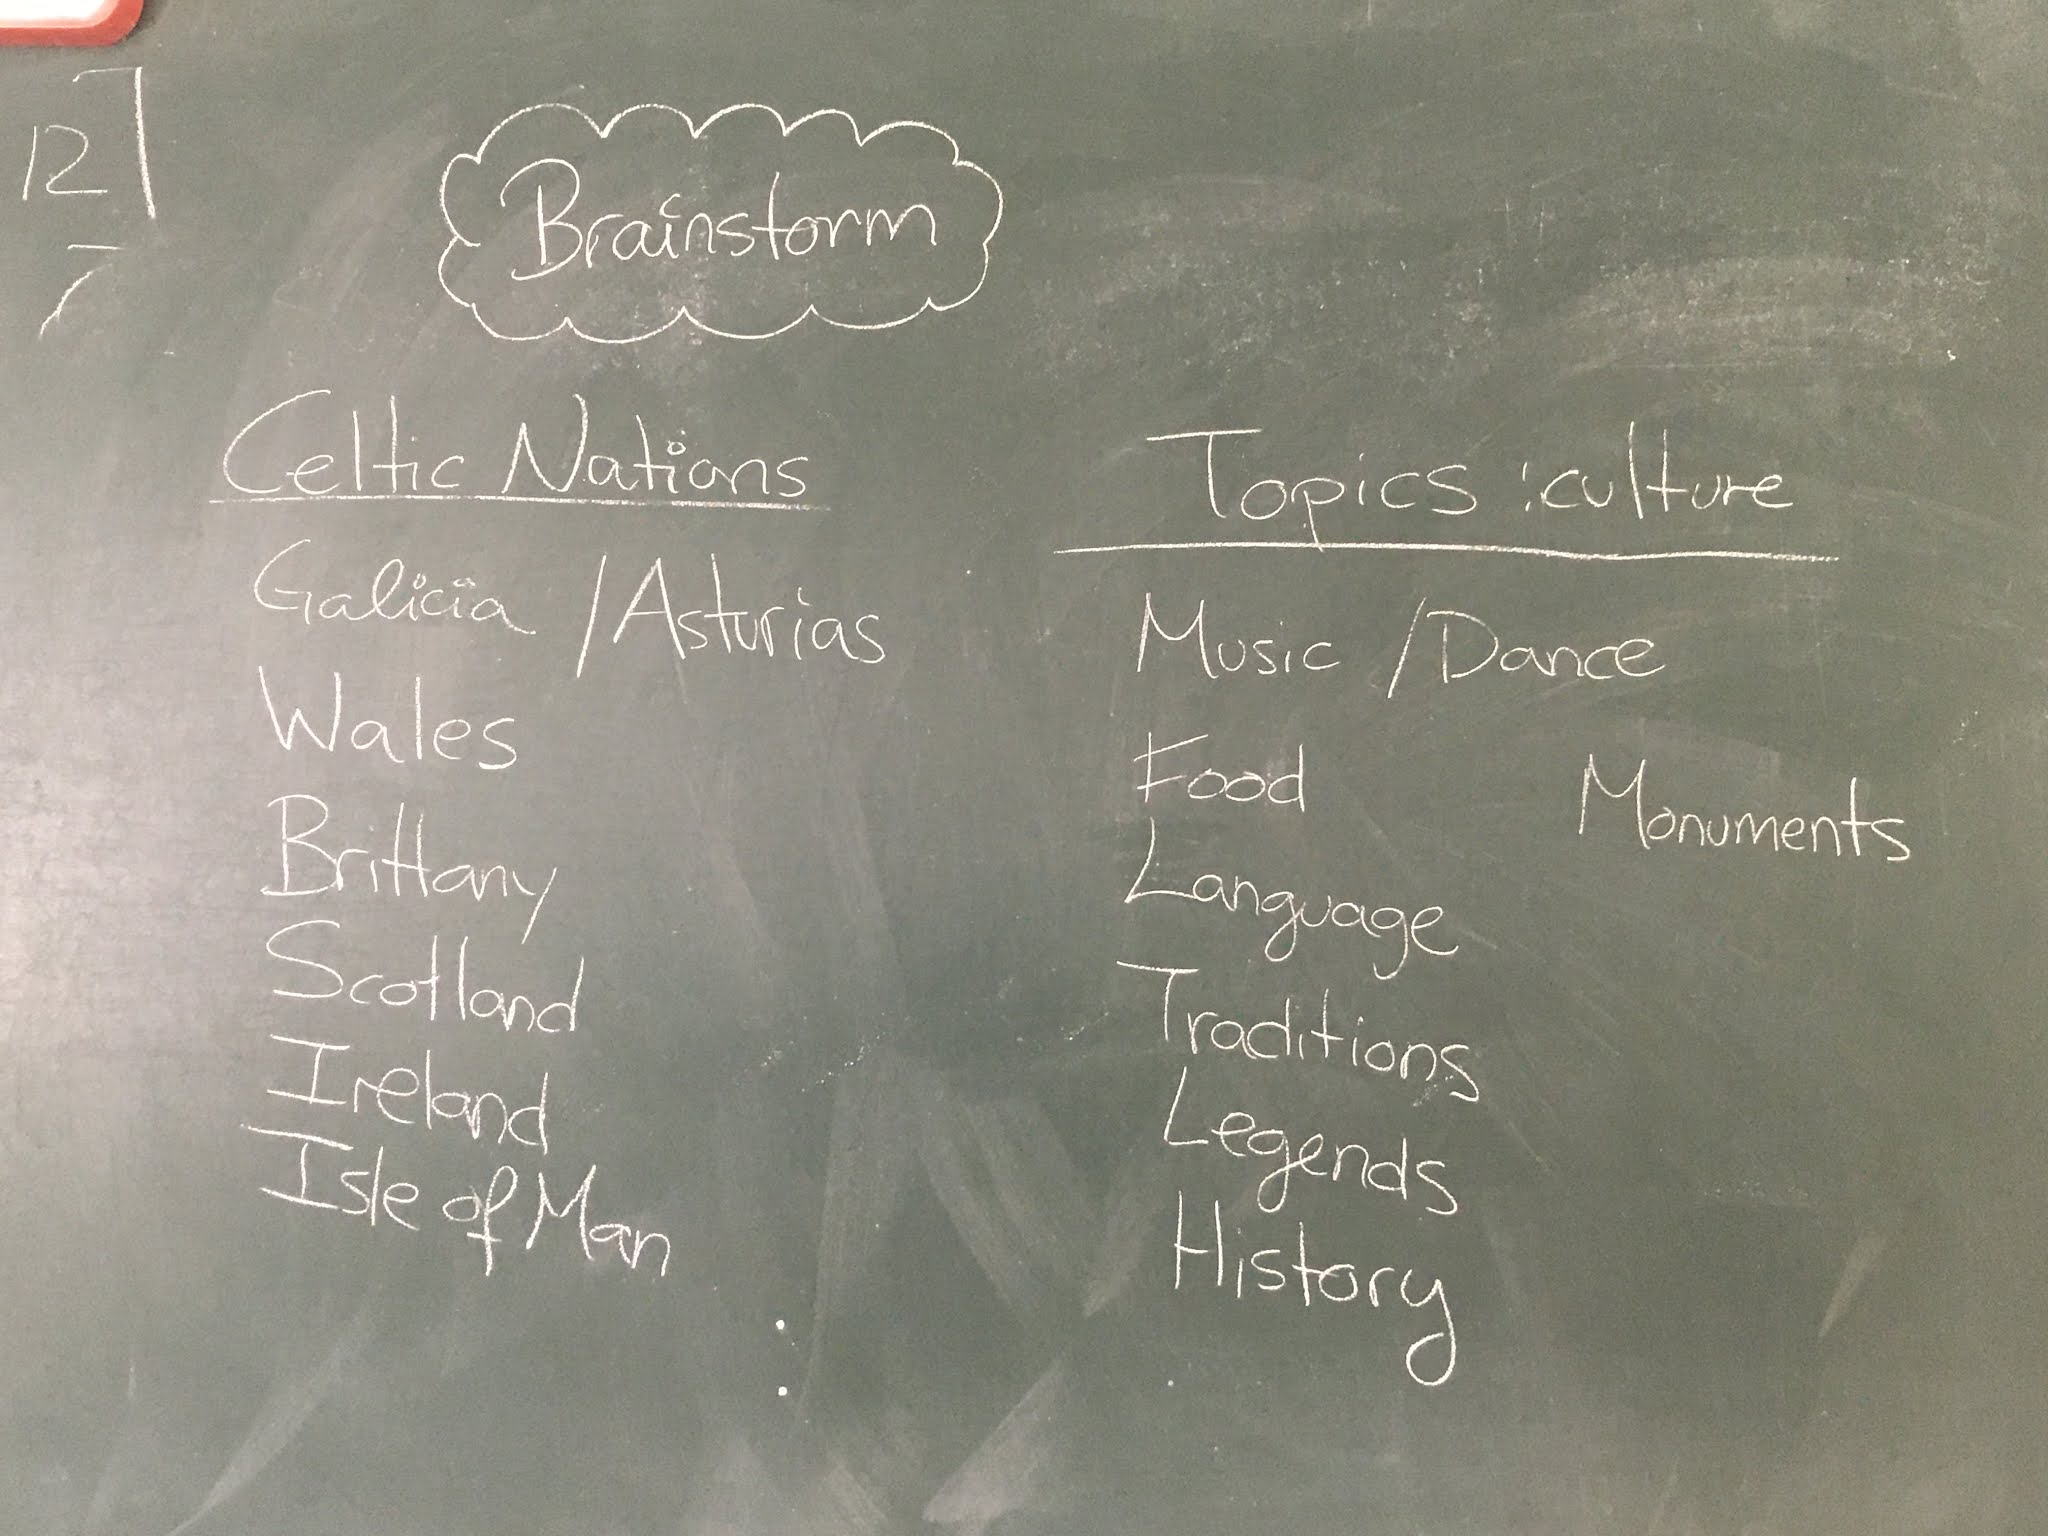 12
Brainstorm
Celtic Nations
Galicia / Asturias
Wales
Brittany
Scotland
Ireland
Isle of Man
Topics : culture
Music / Dance
Food
Monuments
Language
Traditions
Legends
History